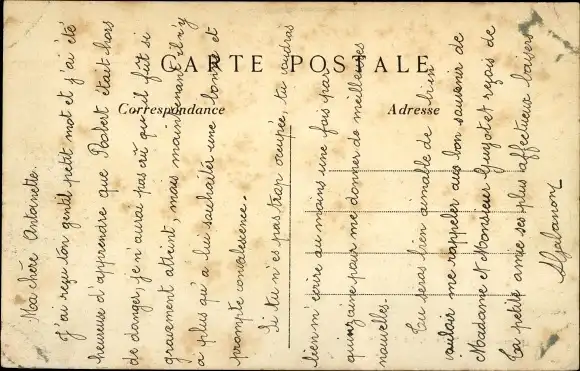 CARTE POSTALE
Correspondance
Adresse
Ma chère Antoinette.
J'ai reçu ton gentil petit mot et j'ai été
heureuse d'apprendre que Robert était hors
de danger, je n'aurai pas crû qu'il fût si
gravement atteint, mais maintenant il n'y
a plus qu'à lui souhaiter une bonne et
prompte convalescence.
Si tu n'es pas trop occupée, tu voudras
bien m'écrire au moins une fois par
quinzaine pour me donner de meilleures
nouvelles.
Tu seras bien aimable de bien
vouloir me rappeler au bon souvenir de
Madame et Monsieur Guyot et reçois de
ta petite amie ses plus affectueux baisers